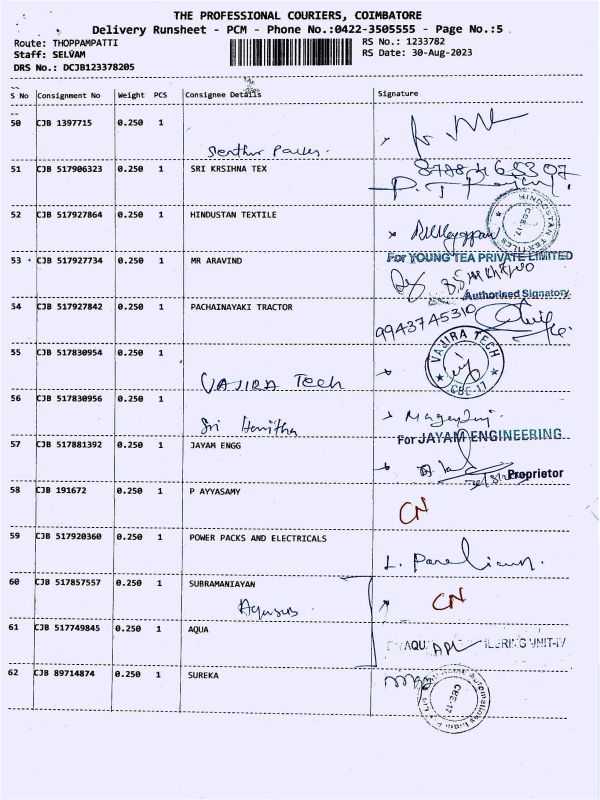 THE PROFESSIONAL COURIERS, COIMBATORE
Delivery Runsheet - PCM - Phone No.:0422-3505555 - Page No.:5
Route: THOPPAMPATTI RS No.: 1233782
Staff: SELVAM RS Date: 30-Aug-2023
DRS No.: DCJB123378205
S No Consignment No Weight PCS Consignee Details Signature
50 CJB 1397715 0.250 1
51 CJB 517906323 0.250 1 SRI KRSIHNA TEX
52 CJB 517927864 0.250 1 HINDUSTAN TEXTILE
HINDOSTAN TEXTILES CBE-17.
53 CJB 517927734 0.250 1 MR ARAVIND For YOUNG TEA PRIVATE LIMITED
Authorised Signatory
54 CJB 517927842 0.250 1 PACHAINAYAKI TRACTOR 9943745310
55 CJB 517830954 0.250 1
VAJIRA Tech VAJIRA TECH CBE-17
56 CJB 517830956 0.250 1
Sri
For JAYAM ENGINEERING
57 CJB 517881392 0.250 1 JAYAM ENGG
Proprietor
58 CJB 191672 0.250 1 P AYYASAMY CN
59 CJB 517920360 0.250 1 POWER PACKS AND ELECTRICALS
60 CJB 517857557 0.250 1 SUBRAMANIAYAN CN
61 CJB 517749845 0.250 1 AQUA AQUA UNIT-IV
62 CJB 89714874 0.250 1 SUREKA
CBE-17